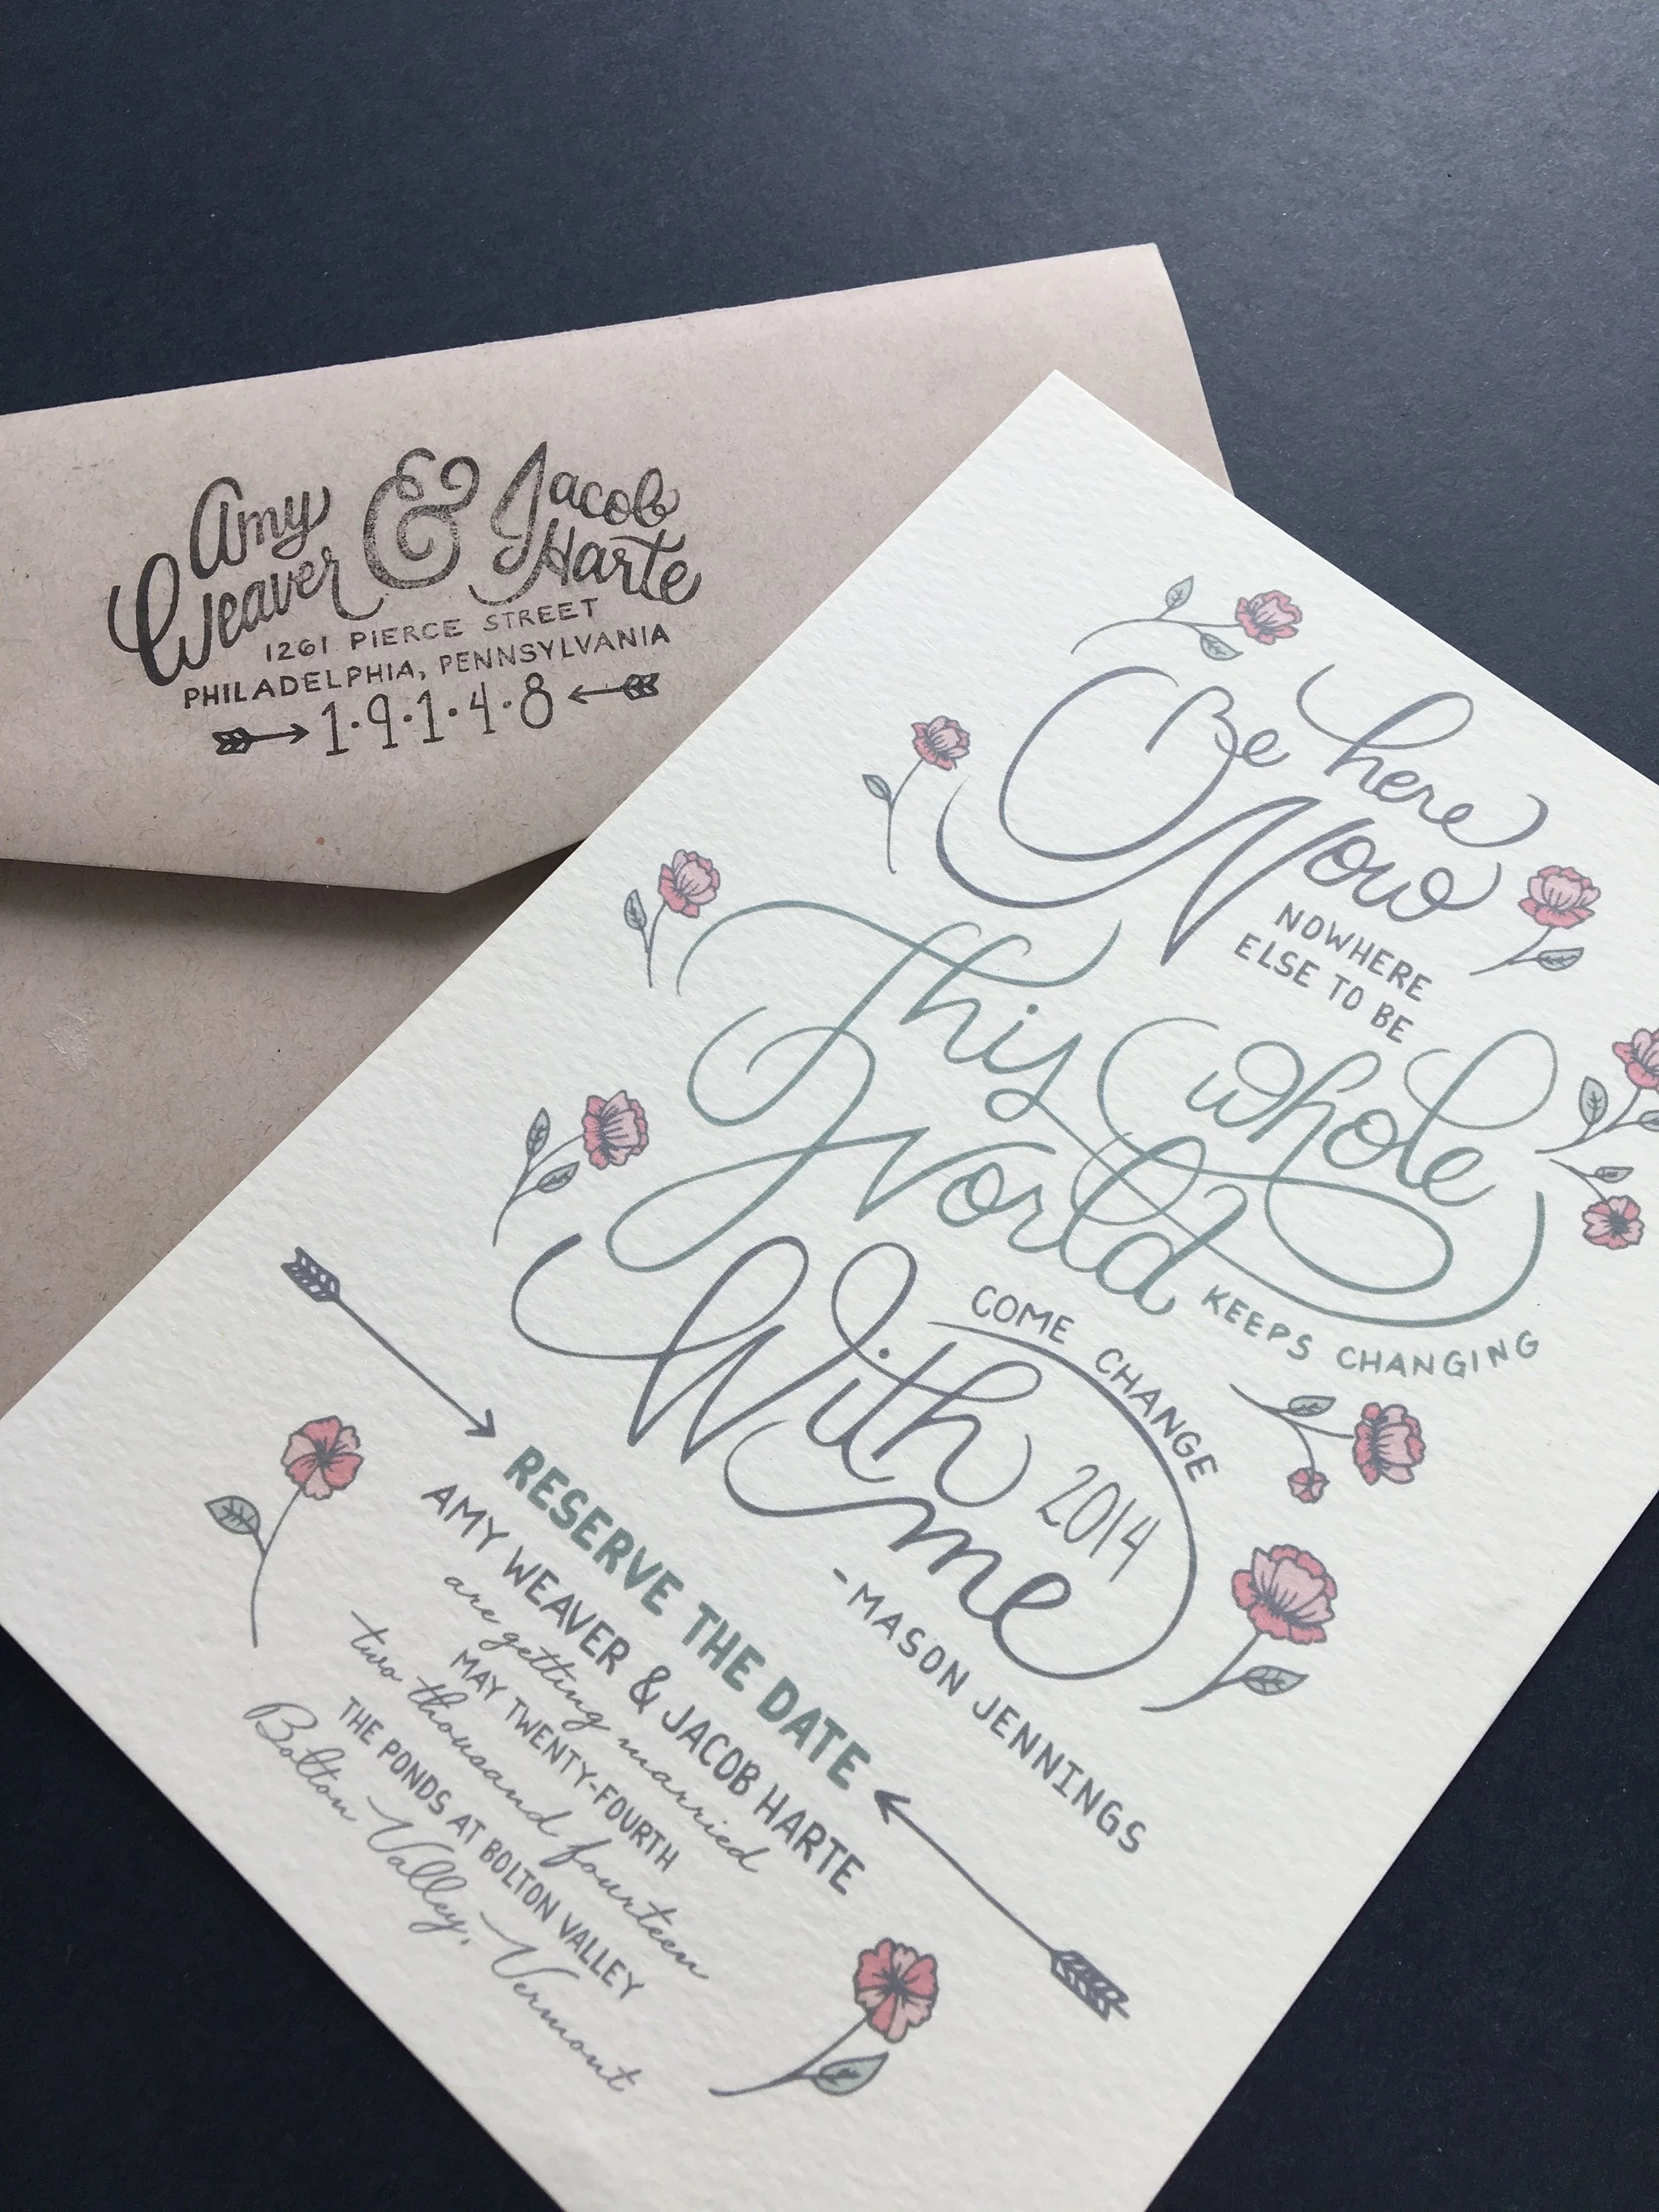 Amy & Jacob
Weaver Harte
1261 PIERCE STREET
PHILADELPHIA, PENNSYLVANIA
1·9·1·4·8
Be here
Now
NOWHERE
ELSE TO BE
This whole
World
KEEPS CHANGING
COME CHANGE
With
me
2014
-MASON JENNINGS
RESERVE THE DATE
AMY WEAVER & JACOB HARTE
are getting married
MAY TWENTY-FOURTH
two thousand fourteen
THE PONDS AT BOLTON VALLEY
Bolton Valley, Vermont